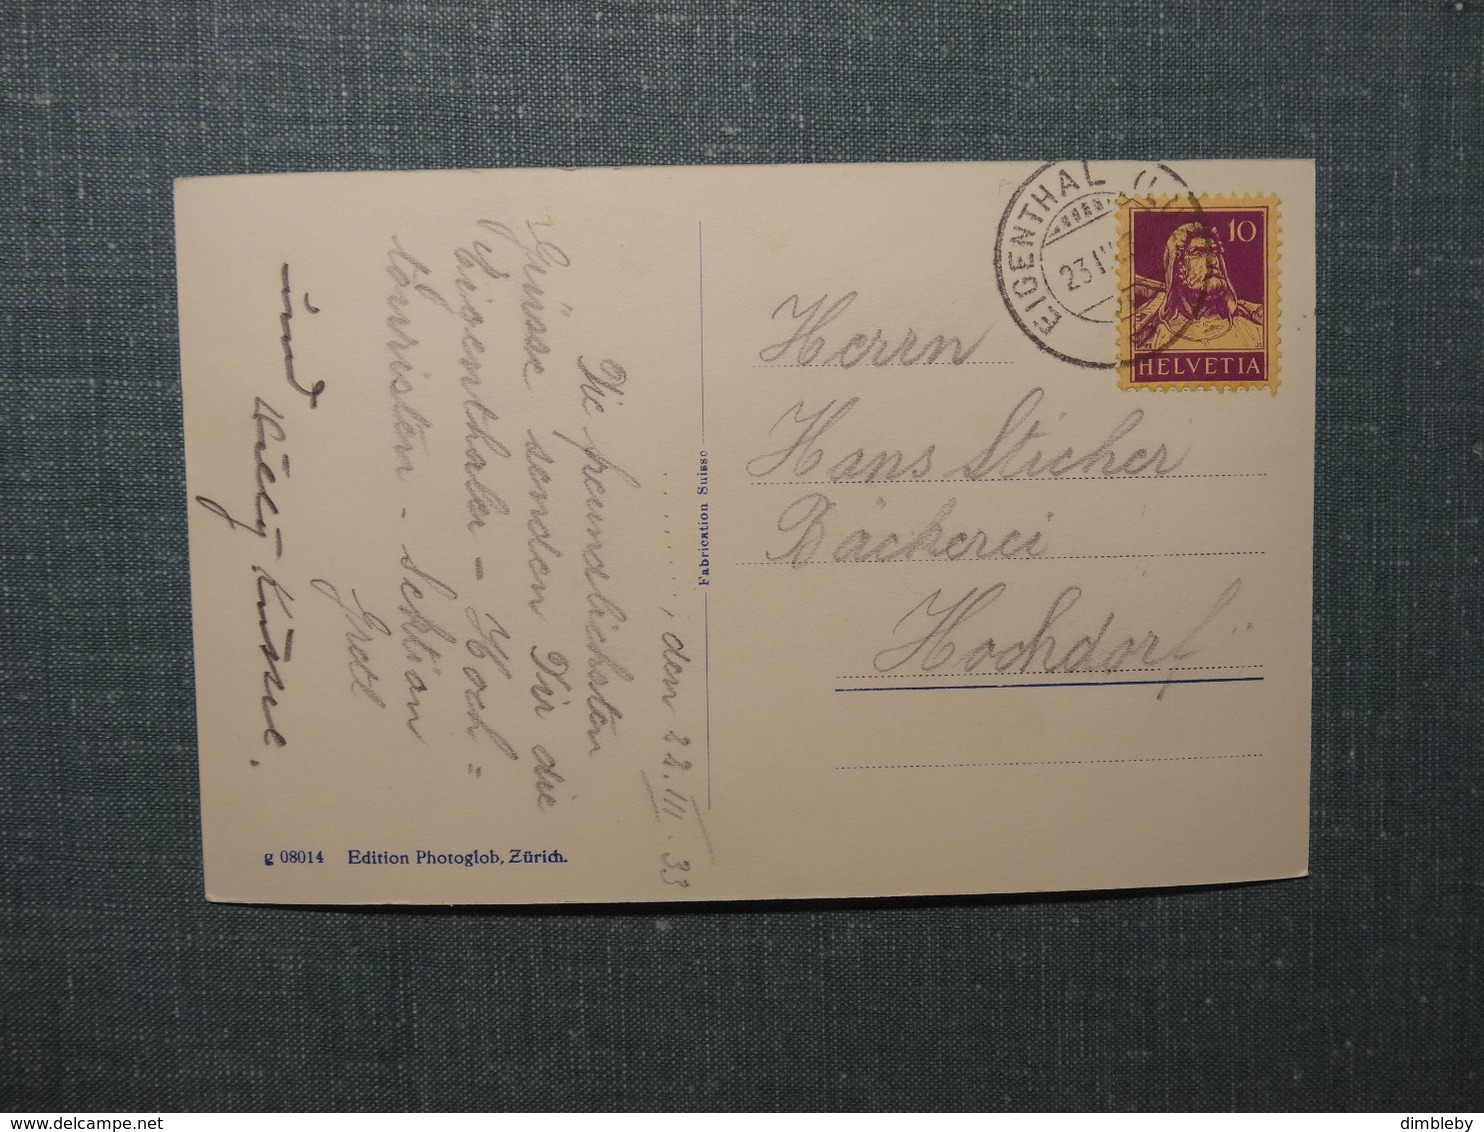 ....., den 22. III. 33
Die freundlichsten
Grüsse senden Dir die
Eigenthaler - Hoch=
tourristen - Sektion
Gretl
und
Willy
Herrn
Hans Sticher
Bäckerei
Hochdorf
Fabrication Suisse
g 08014 Edition Photoglob, Zürich.
EIGENTHAL
10
HELVETIA
delcampe.net
dimbleby